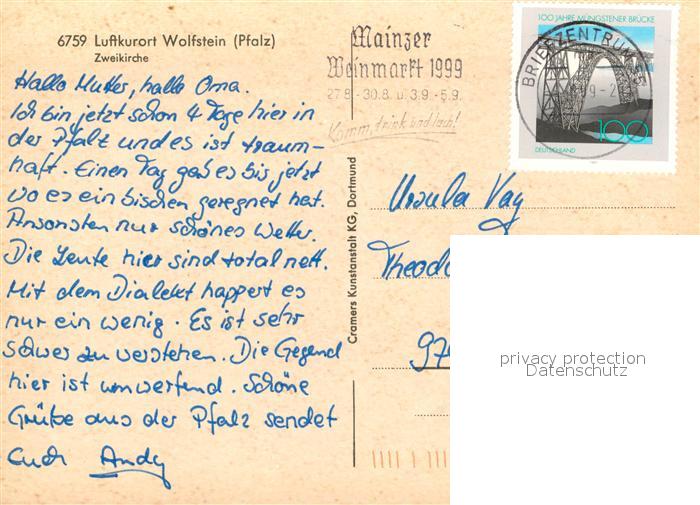 6759 Luftkurort Wolfstein (Pfalz)
Zweikirche
Hallo Mutter, hallo Oma.
Ich bin jetzt schon 4 Tage hier in
der Pfalz und es ist traum-
haft. Einen Tag gab es bis jetzt
wo es ein bischen geregnet hat.
Ansonsten nur schönes Wetter.
Die Leute hier sind total nett.
Mit dem Dialekt happert es
nur ein wenig. Es ist sehr
schwer zu verstehen. Die Gegend
hier ist umwerfend. Schöne
Grüße aus der Pfalz sendet
Euch Andy
Cramers Kunstanstalt KG, Dortmund
Mainzer
Weinmarkt 1999
27.8.-30.8. u. 3.9.-5.9.
Komm, trink und lach!
100 JAHRE MÜNGSTENER BRÜCKE
BRIEFZENTRUM
100
DEUTSCHLAND
Ursula Vay
Theodo
97
privacy protection
Datenschutz